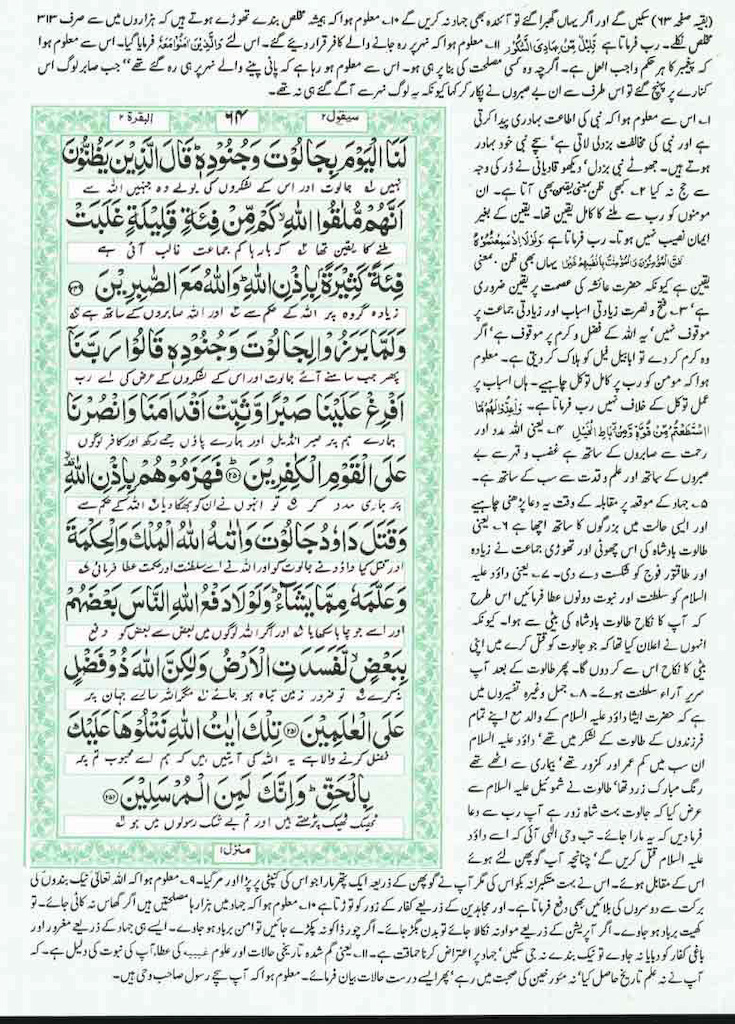 (بقیہ صفحہ ۶۳) سکیں گے اور اگر یہاں گھبرا گئے تو آئندہ بھی جہاد نہ کریں گے ۱۰۔ معلوم ہوا کہ ہمیشہ مخلص بندے تھوڑے ہوتے ہیں کہ ہزاروں میں سے صرف ۳۱۳
مخلص نکلے۔ رب فرماتا ہے قَلِيْلٌ مِّنْ عِبَادِيَ الشَّكُوْرُ ۱۱۔ معلوم ہوا کہ نہر پر رہ جانے والے کافر قرار دیئے گئے۔ اس لئے وَالَّذِيْنَ اٰمَنُوْا مَعَهٗ فرمایا گیا۔ اس سے معلوم ہوا
کہ پیغمبر کا ہر حکم واجب العمل ہے۔ اگرچہ وہ کسی مصلحت کی بنا پر ہی ہو۔ اس سے معلوم ہو رہا ہے کہ پانی پینے والے نہر پر ہی رہ گئے تھے جب صابر لوگ اس
کنارے پر پہنچ گئے تو اس طرف سے ان بے صبروں نے پکار کر کہا کیونکہ یہ لوگ نہر سے آگے گئے ہی نہ تھے۔
سیقول ۲
۶۴
البقرة ۲
لَنَا الْيَوْمَ بِجَالُوْتَ وَجُنُوْدِهٖ ؕ قَالَ الَّذِيْنَ يَظُنُّوْنَ
نہیں جالوت اور اس کے لشکروں کی بولے وہ جنہیں اللہ سے
اَنَّهُمْ مُّلٰقُوا اللّٰهِ ۙ كَمْ مِّنْ فِئَةٍ قَلِيْلَةٍ غَلَبَتْ
ملنے کا یقین تھا کہ بارہا کم جماعت غالب آئی ہے
فِئَةً كَثِيْرَةًۢ بِاِذْنِ اللّٰهِ ؕ وَاللّٰهُ مَعَ الصّٰبِرِيْنَ ﴿۲۴۹﴾
زیادہ گروہ پر اللہ کے حکم سے اور اللہ صابروں کے ساتھ ہے
وَلَمَّا بَرَزُوْا لِجَالُوْتَ وَجُنُوْدِهٖ قَالُوْا رَبَّنَاۤ
پھر جب سامنے آئے جالوت اور اس کے لشکروں کے عرض کی اے رب
اَفْرِغْ عَلَيْنَا صَبْرًا وَّثَبِّتْ اَقْدَامَنَا وَانْصُرْنَا
ہمارے ہم پر صبر انڈیل اور ہمارے پاؤں جمے رکھ اور کافر لوگوں
عَلَى الْقَوْمِ الْكٰفِرِيْنَ ﴿۲۵۰﴾ فَهَزَمُوْهُمْ بِاِذْنِ اللّٰهِ ۙ
پر ہماری مدد کر تو انہوں نے ان کو بھگا دیا اللہ کے حکم سے
وَقَتَلَ دَاوٗدُ جَالُوْتَ وَاٰتٰىهُ اللّٰهُ الْمُلْكَ وَالْحِكْمَةَ
اور قتل کیا داؤد نے جالوت کو اور اللہ نے اسے سلطنت اور حکمت عطا فرمائی
وَعَلَّمَهٗ مِمَّا يَشَآءُ ؕ وَلَوْلَا دَفْعُ اللّٰهِ النَّاسَ بَعْضَهُمْ
اور اسے جو چاہا سکھایا اور اگر اللہ لوگوں میں بعض سے بعض کو دفع
بِبَعْضٍ ۙ لَّفَسَدَتِ الْاَرْضُ وَلٰكِنَّ اللّٰهَ ذُوْ فَضْلٍ
نہ کرے تو ضرور زمین تباہ ہو جائے مگر اللہ سارے جہان پر
عَلَى الْعٰلَمِيْنَ ﴿۲۵۱﴾ تِلْكَ اٰيٰتُ اللّٰهِ نَتْلُوْهَا عَلَيْكَ
فضل کرنے والا ہے یہ اللہ کی آیتیں ہیں کہ ہم اے محبوب تم پر
بِالْحَقِّ ؕ وَاِنَّكَ لَمِنَ الْمُرْسَلِيْنَ ﴿۲۵۲﴾
ٹھیک ٹھیک پڑھتے ہیں اور تم بے شک رسولوں میں ہو
منزل ۱
۱۔ اس سے معلوم ہوا کہ نبی کی اطاعت بہادری پیدا کرتی
ہے اور نبی کی مخالفت بزدلی لاتی ہے سچے نبی خود بہادر
ہوتے ہیں۔ جھوٹے نبی بزدل دیکھو قادیانی نے ڈر کی وجہ
سے حج نہ کیا ۲۔ کبھی ظن بمعنی یقین بھی آتا ہے۔ ان
مومنوں کو رب سے ملنے کا کامل یقین تھا۔ یقین کے بغیر
ایمان نصیب نہیں ہوتا۔ رب فرماتا ہے وَلَوْلَا اِذْ سَمِعْتُمُوْهُ
ظَنَّ الْمُؤْمِنُوْنَ وَالْمُؤْمِنٰتُ بِاَنْفُسِهِمْ خَيْرًا یہاں بھی ظن بمعنی
یقین ہے کیونکہ حضرت عائشہ کی عصمت پر یقین ضروری
ہے ۳۔ فتح و نصرت زیادتی اسباب اور زیادتی جماعت پر
موقوف نہیں یہ اللہ کے فضل و کرم پر موقوف ہے اگر
وہ کرم کر دے تو ابابیل فیل کو ہلاک کر دیتی ہے۔ معلوم
ہوا کہ مومن کو رب پر کامل توکل چاہیے۔ ہاں اسباب پر
عمل توکل کے خلاف نہیں رب فرماتا ہے۔ وَاَعِدُّوْا لَهُمْ مَّا
اسْتَطَعْتُمْ مِّنْ قُوَّةٍ وَّمِنْ رِّبَاطِ الْخَيْلِ ۴۔ یعنی اللہ مدد اور
رحمت سے صابروں کے ساتھ ہے غضب و قہر سے بے
صبروں کے ساتھ اور علم و قدرت سے سب کے ساتھ ہے۔
۵۔ جہاد کے موقعہ پر مقابلہ کے وقت یہ دعا پڑھنی چاہیے
اور ایسی حالت میں بزرگوں کا ساتھ اچھا ہے ۶۔ یعنی
طالوت بادشاہ کی اس چھوٹی اور تھوڑی جماعت نے زیادہ
اور طاقتور فوج کو شکست دے دی۔ ۷۔ یعنی داؤد علیہ
السلام کو سلطنت اور نبوت دونوں عطا فرمائیں اس طرح
کہ آپ کا نکاح طالوت بادشاہ کی بیٹی سے ہوا۔ کیونکہ
انہوں نے اعلان کیا تھا کہ جو جالوت کو قتل کرے میں اپنی
بیٹی کا نکاح اس سے کر دوں گا۔ پھر طالوت کے بعد آپ
سریر آراء سلطنت ہوئے۔ ۸۔ جمل وغیرہ تفسیروں میں
ہے کہ حضرت ایشا داؤد علیہ السلام کے والد مع اپنے تمام
فرزندوں کے طالوت کے لشکر میں تھے داؤد علیہ السلام
ان سب میں کم عمر اور کمزور تھے بیماری سے اٹھے تھے
رنگ مبارک زرد تھا طالوت نے شموئیل علیہ السلام سے
عرض کیا کہ جالوت بہت شاہ زور ہے آپ رب سے دعا
فرمادیں کہ یہ مارا جائے۔ تب وحی الٰہی آئی کہ اسے داؤد
علیہ السلام قتل کریں گے چنانچہ آپ گوپھن لئے ہوئے
اس کے مقابل ہوئے۔ اس نے بہت متکبرانہ بکواس کی مگر آپ نے گوپھن کے ذریعہ ایک پتھر مارا جو اس کی کنپٹی پر پڑا اور مر گیا۔ ۹۔ معلوم ہوا کہ اللہ تعالیٰ نیک بندوں کی
برکت سے دوسروں کی بلائیں بھی دفع فرماتا ہے۔ اور مجاہدین کے ذریعے کفار کے زور کو توڑتا ہے ۱۰۔ معلوم ہوا کہ جہاد میں ہزارہا مصلحتیں ہیں اگر گھاس نہ کاٹی جائے۔ تو
کھیت برباد ہو جاوے۔ اگر آپریشن کے ذریعے مواد نہ نکالا جائے تو بدن بگڑ جائے۔ اگر چور ڈاکو نہ پکڑے جائیں تو امن برباد ہو جاوے۔ ایسے ہی جہاد کے ذریعے مغرور اور
باغی کفار کو دبایا نہ جاوے تو نیک بندے نہ جی سکیں جہاد پر اعتراض کرنا حماقت ہے۔ ۱۱۔ یعنی گم شدہ تاریخی حالات اور علوم غیبیہ کی عطا، آپ کی نبوت کی دلیل ہے۔ کہ
آپ نے نہ علم تاریخ حاصل کیا نہ مؤرخین کی صحبت میں رہے پھر ایسے درست حالات بیان فرمائے۔ معلوم ہوا کہ آپ سچے رسول صاحب وحی ہیں۔